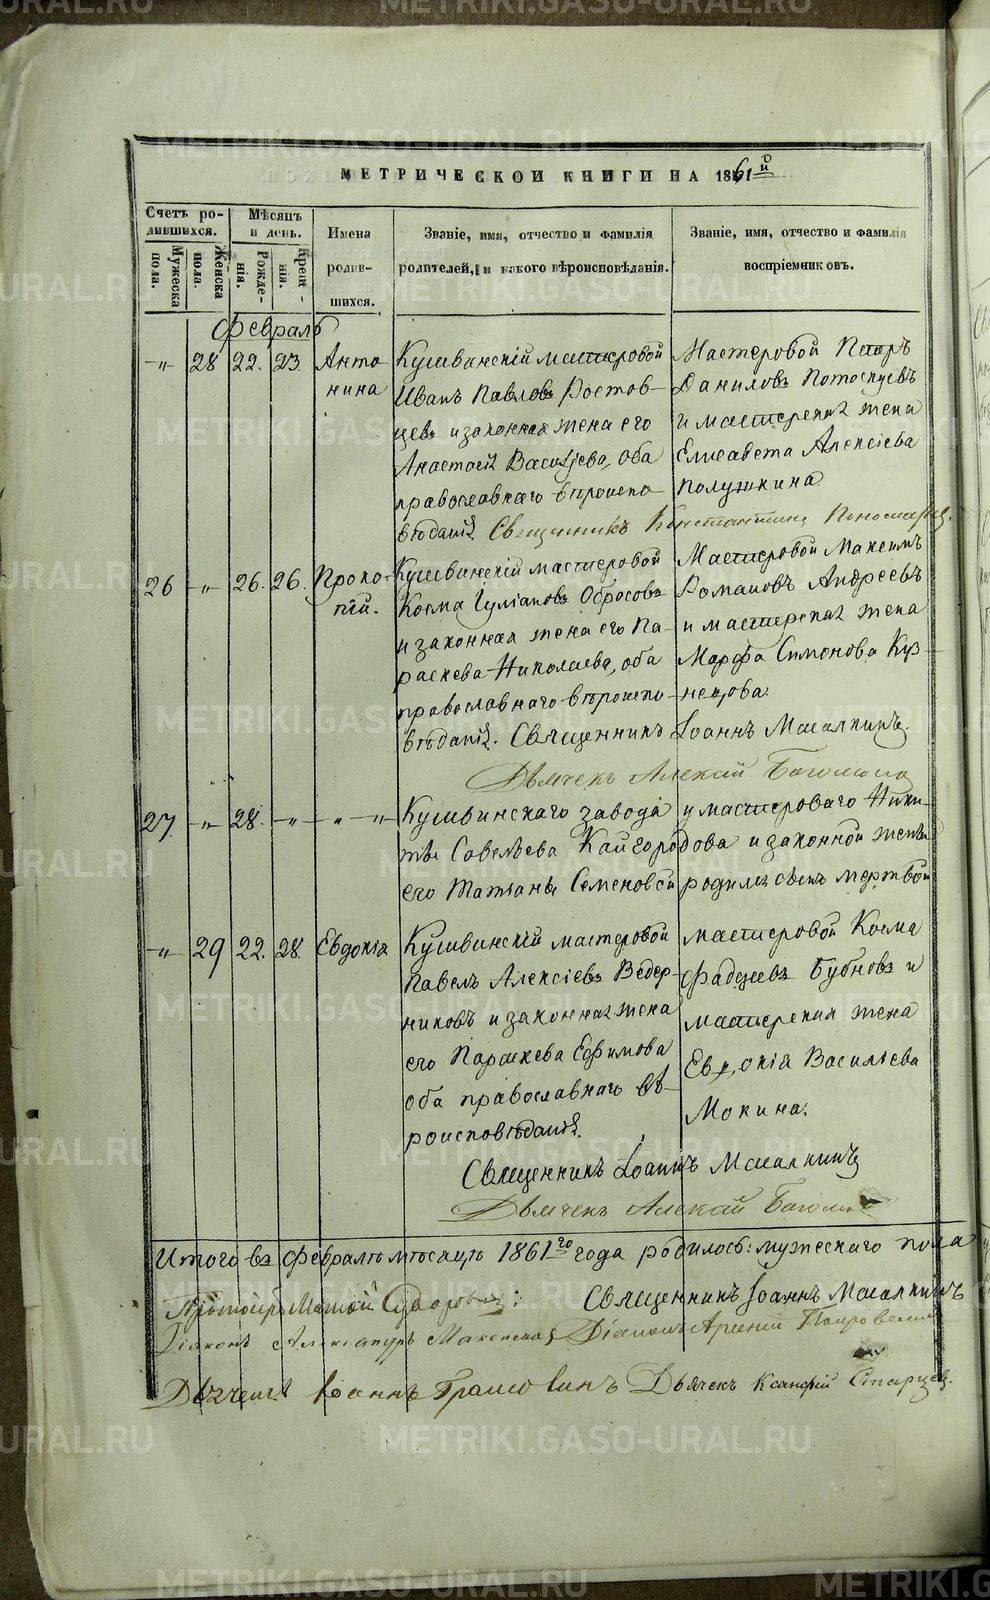 МЕТРИЧЕСКОЙ КНИГИ НА 1861й
Счетъ родившихся.
Мужеска пола.
Женска пола.
Мѣсяцъ и день.
Рожденія.
Крещенія.
Имена родившихся.
Званіе, имя, отчество и фамилія родителей, и какого вѣроисповѣданія.
Званіе, имя, отчество и фамилія воспріемниковъ.
Февраль
-„- 28 22. 23. Антонина
Кушвинскій мастеровой
Иванъ Павловъ Ростов-
цевъ и законная жена его
Анастасія Васильева, оба
православнаго вѣроиспо-
вѣданія.
Мастеровой Петръ
Даниловъ Потоскуевъ
и мастерская жена
Елисавета Алексіева
Полушкина
Священникъ Константинъ Пономарев.
26 -„- 26. 26. Прокопій.
Кушвинскій мастеровой
Косма Іуліановъ Обросовъ
и законная жена его Па-
раскева Николаева, оба
православнаго вѣроиспо-
вѣданія.
Мастеровой Максимъ
Романовъ Андреевъ
и мастерская жена
Марфа Симонова Куз-
нецова.
Священникъ Іоаннъ
Дьячекъ Алексій
27. -„- 28. -„- -„-
Кушвинскаго завода у мастероваго Ники-
ты Савельева Кайгородова и законной жены
его Татьяны Семеновой родился сынъ мертвой
-„- 29 22. 28. Евдокія
Кушвинскій мастеровой
Павелъ Алексіевъ Ведер-
никовъ и законная жена
его Параскева Ефимова
оба православнаго вѣ-
роисповѣданія.
Мастеровой Косма
Фадѣевъ Бубновъ и
мастерская жена
Евдокія Васильева
Мокина.
Священникъ Іоаннъ
Дьячекъ Алексій
Итого въ Февралѣ мѣсяцѣ 1861го года родилось: мужескаго пола
Протоіерей Священникъ Іоаннъ
Діаконъ Александръ Діаконъ Арсеній
Дьячекъ Іоаннъ Дьячекъ Ксанфій Старцев.
METRIKI.GASO-URAL.RU